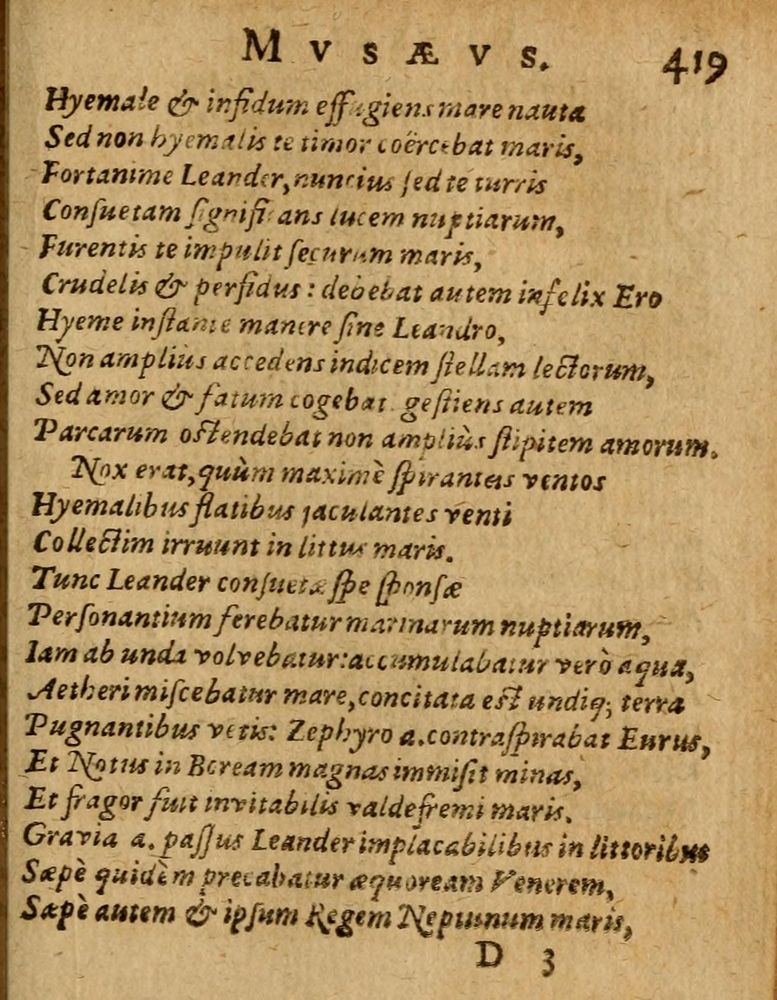 MVSÆVS. 419
Hyemale & infidum effugiens mare nauta
Sed non hyemalis te timor coërcebat maris,
Fortanime Leander, nuncius sed te turris
Consuetam significans lucem nuptiarum,
Furentis te impulit securum maris,
Crudelis & perfidus: debebat autem infelix Ero
Hyeme instante manere sine Leandro,
Non amplius accedens indicem stellam lectorum,
Sed amor & fatum cogebat. gestiens autem
Parcarum ostendebat non ampliùs stipitem amorum.
Nox erat, quùm maximè spirantes ventos
Hyemalibus flatibus jaculantes venti
Collectim irruunt in littus maris.
Tunc Leander consuetæ spe sponsæ
Personantium ferebatur marinarum nuptiarum,
Iam ab unda volvebatur: accumulabatur verò aqua,
Aetheri miscebatur mare, concitata est undiq; terra
Pugnantibus vētis: Zephyro a. contraspirabat Eurus,
Et Notus in Boream magnas immisit minas,
Et fragor fuit invitabilis valdefremi maris.
Gravia a. passus Leander implacabilibus in littoribus
Sæpè quidèm precabatur æquoream Venerem,
Sæpè autem & ipsum Regem Neptunum maris,
D 3